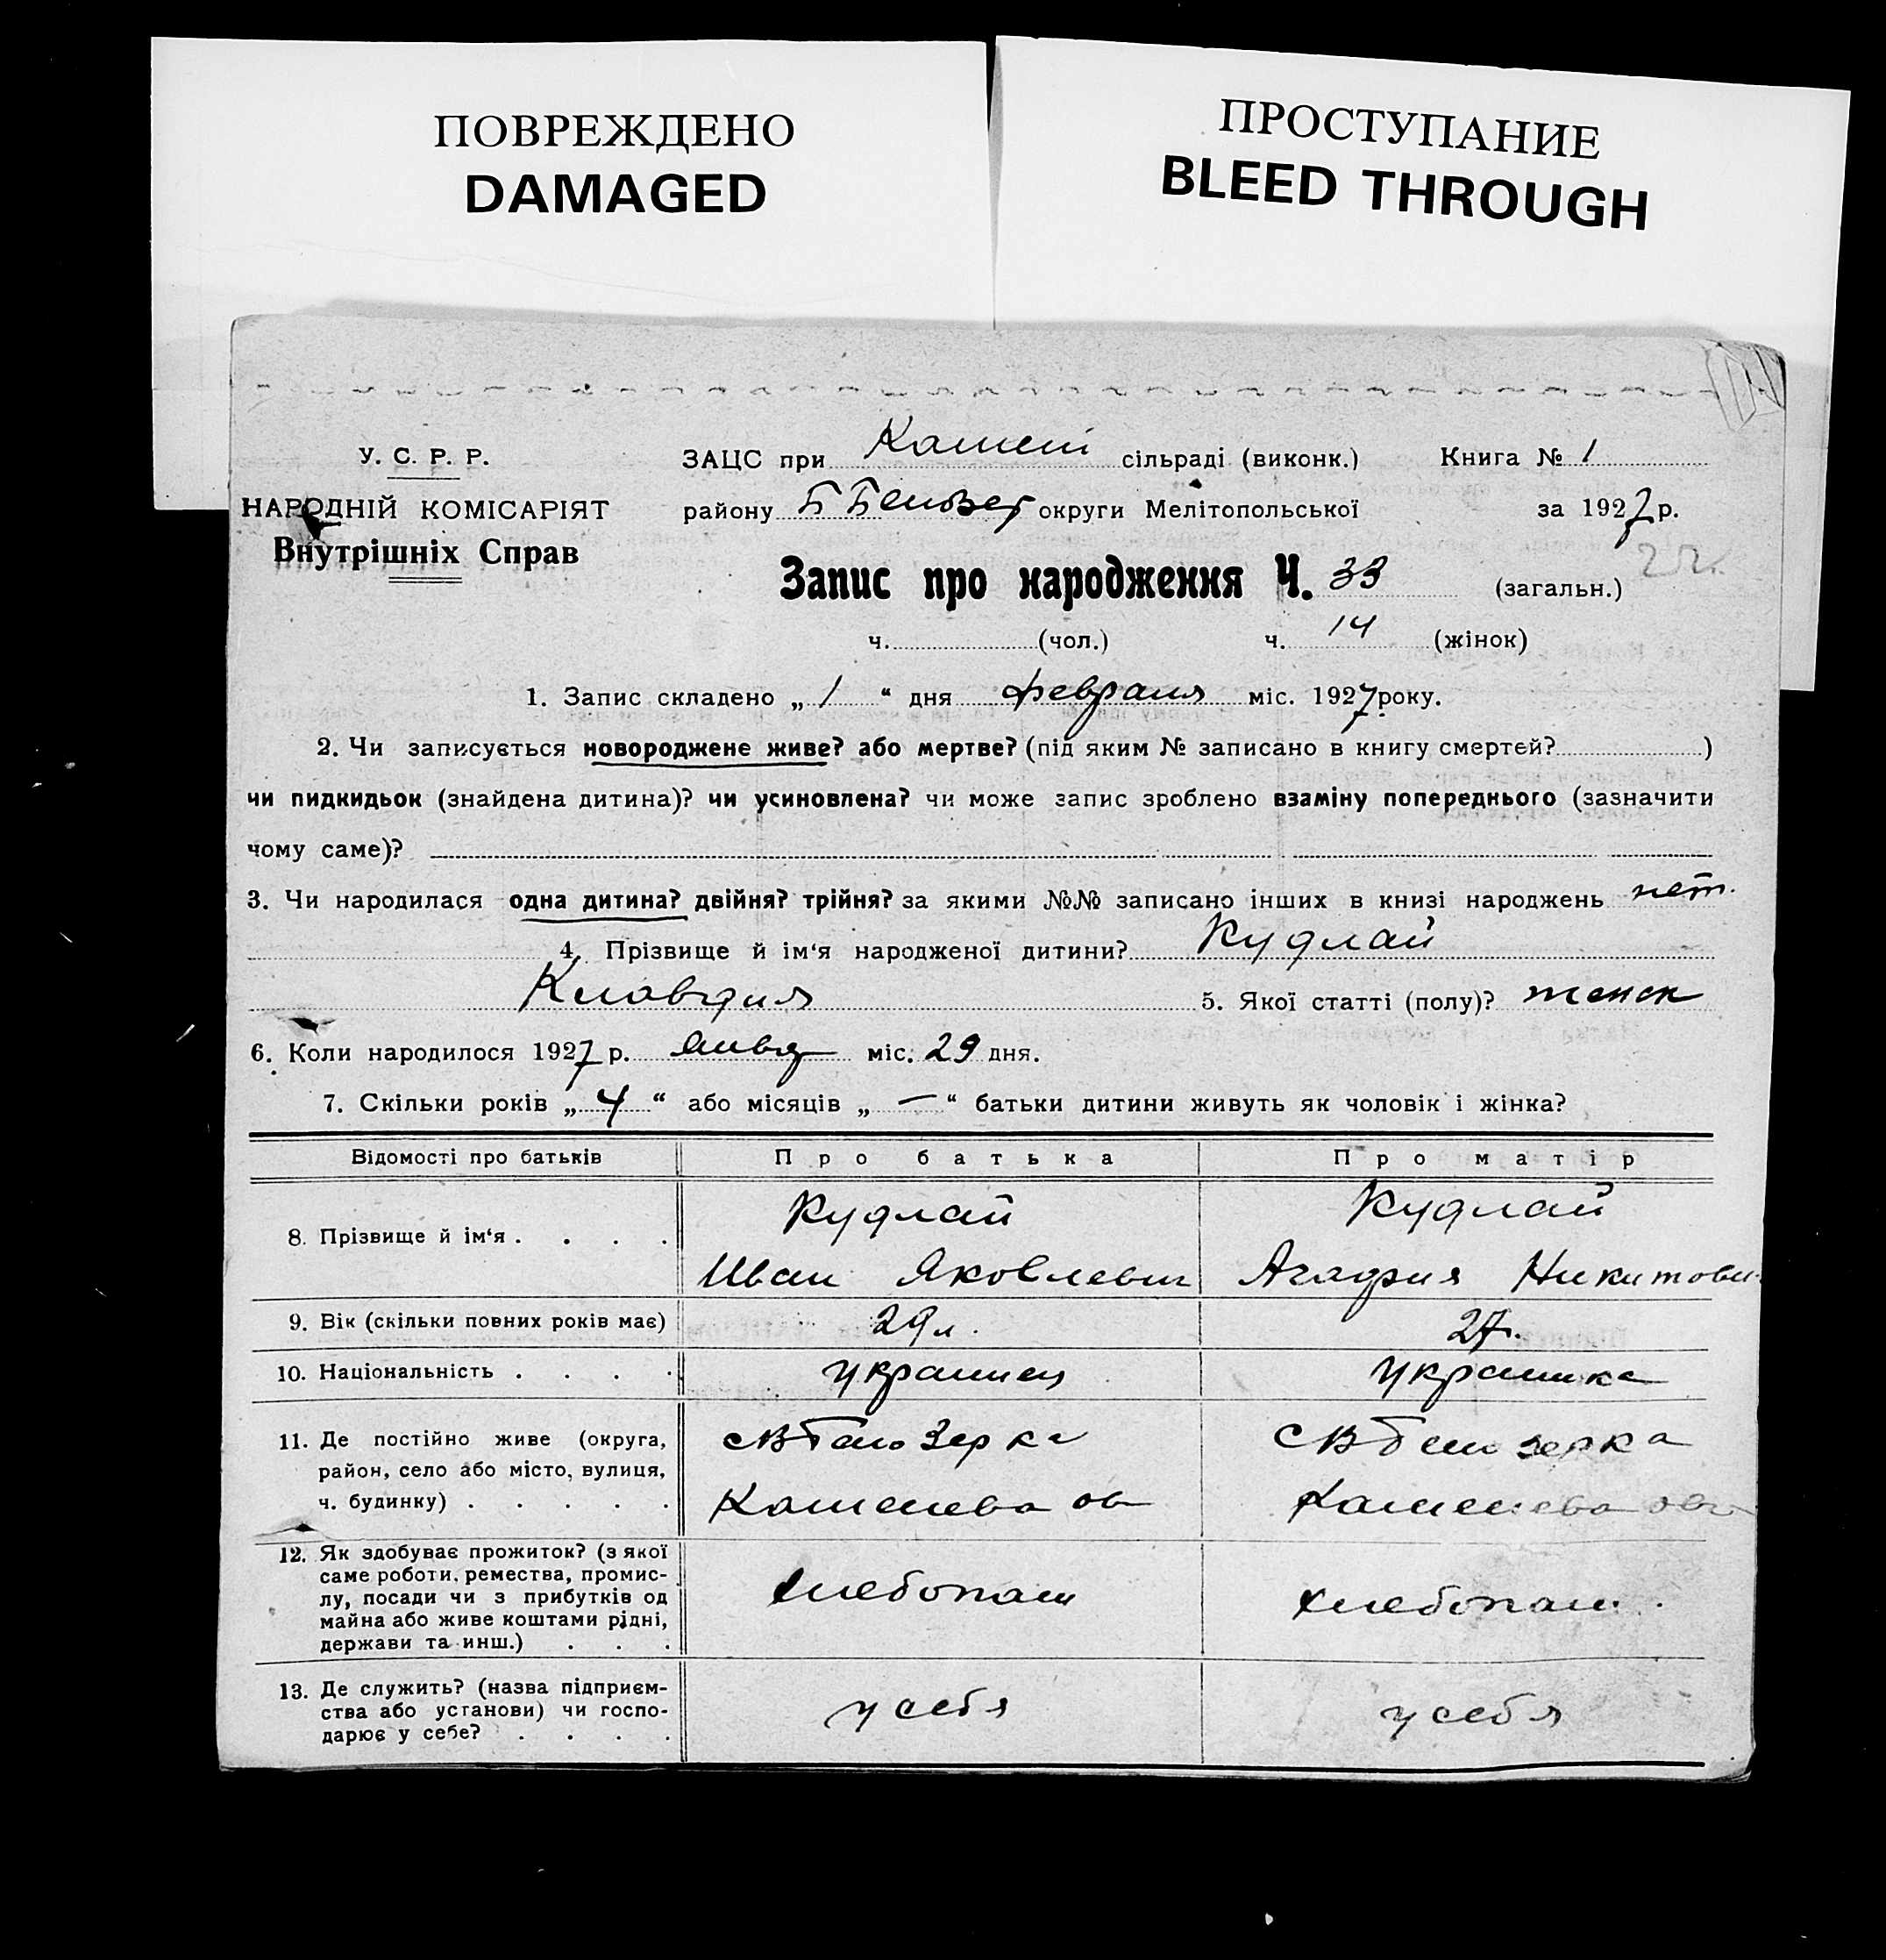 ПОВРЕЖДЕНО
DAMAGED
ПРОСТУПАНИЕ
BLEED THROUGH
У. С. Р. Р.
НАРОДНІЙ КОМІСАРІЯТ
Внутрішніх Справ
ЗАЦС при Камені сільраді (виконк.) Книга № 1
району Б Белозер округи Мелітопольської за 1927 р.
Запис про народження Ч. 33 (загальн.)
ч. (чол.) ч. 14 (жінок)
1. Запис складено „ 1 “ дня февраля міс. 1927 року.
2. Чи записується новороджене живе? або мертве? (під яким № записано в книгу смертей? )
чи пидкидьок (знайдена дитина)? чи усиновлена? чи може запис зроблено взаміну попереднього (зазначити
чому саме)?
3. Чи народилася одна дитина? двійня? трійня? за якими №№ записано інших в книзі народжень нет.
4. Прізвище й ім‘я народженої дитини? Кудлай
Клавдия 5. Якої статті (полу)? женск
6. Коли народилося 1927 р. Январ міс. 29 дня.
7. Скільки років „ 4 “ або місяців „ — “ батьки дитини живуть як чоловік і жінка?
Відомості про батьків Про батька Про матір
8. Прізвище й ім‘я . . . . Кудлай Кудлай
Иван Яковлевич Агафия Никитови
9. Вік (скільки повних років має) 29 л. 27 г.
10. Національність . . . . украинец украинка
11. Де постійно живе (округа, район, село або місто, вулиця, ч. будинку) . . . . . с В Белозерка с В Белозерка
Каменева Каменева
12. Як здобуває прожиток? (з якої
саме роботи, ремества, промис-
лу, посади чи з прибутків од
майна або живе коштами рідні,
держави та инш.) . . . хлебопаш хлебопаш.
13. Де служить? (назва підприєм-
ства або установи) чи госпо-
дарює у себе? . . . . у себя у себя